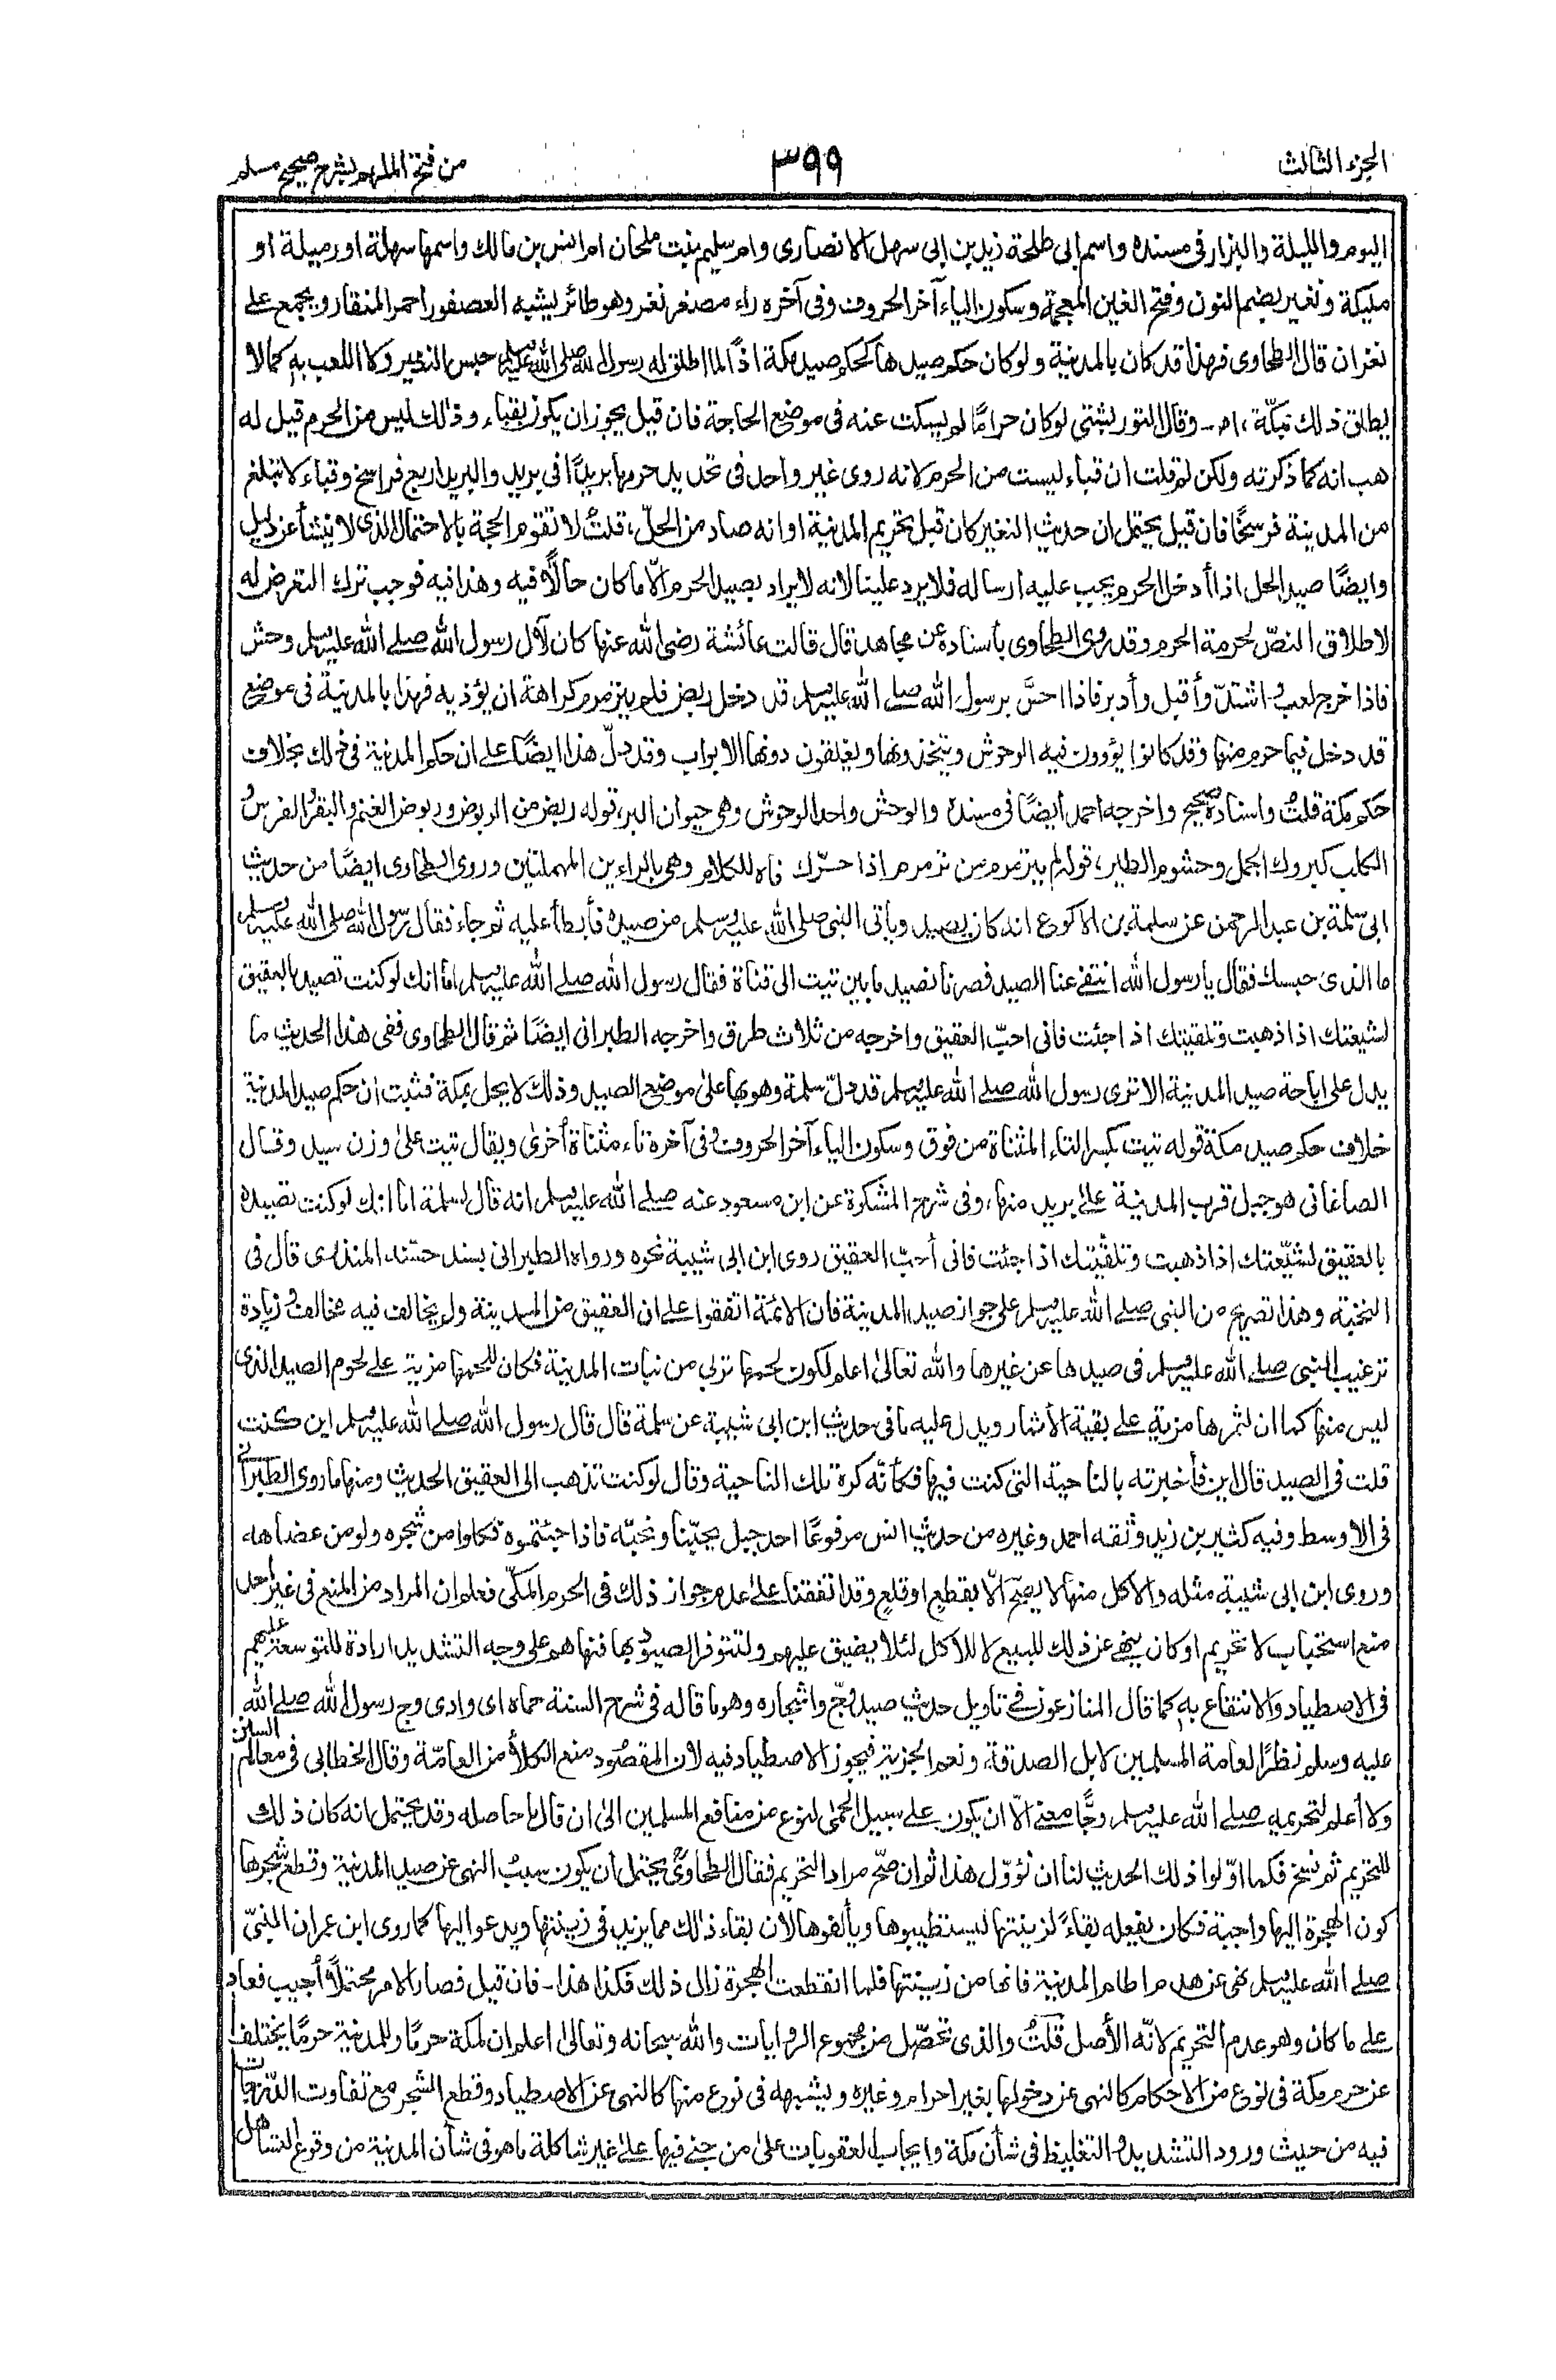 الجزء الثالث
٣٩٩
من فتح الملهم بشرح صحيح مسلم
اليوم والليلة والبزار فى مسنده واسم ابى طلحة زيد بن ابى سهل الانصارى وام سليم بنت ملحان ام انس بن مالك واسمها سهلة او رميلة او
مليكة ونغير بضم النون وفتح الغين المعجمة وسكون الياء آخر الحروف وفى آخره راء مصغر نغر وهو طائر يشبه العصفور احمر المنقار ويجمع على
نغران قال الطحاوى فهذا قد كان بالمدينة ولو كان حكم صيدها كحكم صيد مكة اذًا لما اطلق له رسول الله صلى الله عليه وسلم حبس النغير وكا اللعب به كما لا
يطلق ذلك بمكة، اھ۔ وقال التوربشتى لو كان حرامًا لم يسكت عنه فى موضع الحاجة فان قيل يجوز ان يكون بقباء وذلك ليس من الحرم قيل له
هب انه كما ذكرته ولكن لم قلت ان قباء ليست من الحرم لانه روى غير واحد فى تحديد حرمها بريدًا فى بريد والبريد اربع فراسخ وقباء لا تبلغ
من المدينة فرسخًا فان قيل يحتمل ان حديث النغير كان قبل تحريم المدينة او انه صاد من الحلّ، قلتُ لا تقوم الحجة بالاحتمال الذى لا ينشأ عن دليل
وايضًا صيد الحل اذا أدخل الحرم يجب عليه ارساله فلا يرد علينا لانه لا يراد بصيد الحرم الّا ما كان حالًّا فيه وهذا فيه فوجب ترك التعرض له
لاطلاق النصّ لحرمة الحرم وقد روى الطحاوى بأسناده عن مجاهد قال قالت عائشة رضى الله عنها كان لآل رسول الله صلے الله عليه وسلم وحش
فاذا خرج لعب و اشتدّ وأقبل وأدبر فاذا احسّ برسول الله صلے الله عليه وسلم قد دخل ربض فلم يترمرم كراهة ان يؤذيه فهذا بالمدينة فى موضع
قد دخل فيما حرم منها وقد كانوا يؤوون فيه الوحوش ويتخذونها ويغلقون دونها الابواب وقد دلّ هذا ايضًا على ان حكم المدينة فى ذلك بخلاف
حكم مكة قلتُ واسناده صحيح واخرجه احمد ايضًا فى مسنده والوحش واحد الوحوش وهى حيوان البر، قوله ربض من الربوض وربوض الغنم والبقر والفرس و
الكلب كبروك الجمل وجثوم الطير، قوله لم يترمرم من ترمرم اذا حرّك فاه للكلام وهى بالراءين المهملتين وروى الطحاوى ايضًا من حديث
ابى سلمة بن عبد الرحمن عن سلمة بن الاكوع انه كان يصيد ويأتى النبى صلى الله عليه وسلم من صيده فأبطأ عليه ثم جاء فقال رسول الله صلى الله عليه وسلم
ما الذى حبسك فقال يا رسول الله انتفے عنا الصيد فصرنا نصيد ما بين تيت الى قناة فقال رسول الله صلے الله عليه وسلم اما انك لو كنت تصيد بالعقيق
لشيعتك اذا ذهبت وتلقيتك اذا جئت فانى احبّ العقيق واخرجه من ثلاث طرق واخرجه الطبرانى ايضًا ثم قال الطحاوى ففى هذا الحديث ما
يدل على اباحة صيد المدينة الا ترى رسول الله صلے الله عليه وسلم قد دلّ سلمة وهو بها على موضع الصيد وذلك لا يحل بمكة فثبت ان حكم صيد المدينة
خلاف حكم صيد مكة قوله تيت بكسر التاء المثناة من فوق وسكون الياء آخر الحروف وفى آخره تاء مثناة أخرى ويقال تيت على وزن سيد وقال
الصاغانى هو جبل قرب المدينة علے بريد منها، وفى شرح المشكوة عن ابن مسعود عنه صلے الله عليه وسلم انه قال لسلمة اما انك لو كنت تصيده
بالعقيق لشيّعتك اذا ذهبت وتلقّيتك اذا جئت فانى أحبّ العقيق روى ابن ابى شيبة نحوه ورواه الطبرانى بسند حسّنه المنذرى قال فى
النخبة وهذا تصريح من النبى صلے الله عليه وسلم على جواز صيد المدينة فان الائمّة اتفقوا على ان العقيق من المدينة ولم يخالف فيه مخالف و زيادة
ترغيب النبى صلے الله عليه وسلم فى صيدها عن غيرها والله تعالى اعلم لكون لحمها تربى من نبات المدينة فكان للحمها مزية على لحوم الصيد الذى
ليس منها كما ان لثمرها مزية على بقية الأثمار ويدل عليه ما فى حديث ابن ابى شيبة عن سلمة قال قال رسول الله صلے الله عليه وسلم اين كنت
قلت فى الصيد قال اين فأخبرته بالناحية التى كنت فيها فكأنّه كره تلك الناحية وقال لو كنت تذهب الى العقيق الحديث ومنها ما روى الطبرانے
فى الاوسط وفيه كثير بن زيد وثقه احمد وغيره من حديث انس مرفوعًا احد جبل يحبّنا ونحبّه فاذا جئتموه فكلوا من شجره ولو من عضاهه
وروى ابن ابى شيبة مثله والاكل منها لا يصحّ الّا بقطع او قلع وقد اتفقنا علے عدم جواز ذلك فى الحرم المكّى فعلم ان المراد من المنع فى غير احد
منع استحباب لا تحريم او كان ينهے عن ذلك للبيع لا للاكل لئلا يضيق عليهم ولتتوفر الصيود بها فنهاهم على وجه التشديد ارادة للتوسعة عليهم
فى الاصطياد والانتفاع به كما قال المنازعون فے تاويل حديث صيد وجّ واشجاره وهو ما قاله فى شرح السنة حماه اى وادى وج رسول الله صلے الله
عليه وسلم نظرًا لعامة المسلمين لابل الصدقة، ونعم الجزية فيجوز الاصطياد فيه لان المقصود منع الكلأ من العامّة وقال الخطابى فى معالم السنن
ولا أعلم لتحريمه صلے الله عليه وسلم وجًّا معنے الّا ان يكون علے سبيل الحمٰى لنوع من منافع المسلمين الى ان قال ما حاصله وقد يحتمل انه كان ذلك
للتحريم ثم نسخ فكما اوّلوا ذلك الحديث لنا ان نؤوّل هذا ثم ان صحّ مراد التحريم فقال الطحاوىؒ يحتمل أن يكون سبب النهى عن صيد المدينة وقطع شجرها
كون الهجرة اليها واجبة فكان يفعله بقاءً لزينتها ليستطيبوها ويألفوها لان بقاء ذلك مما يزيد فى زينتها ويدعو اليها كما روى ابن عمر ان النبىّ
صلے الله عليه وسلم نهى عن هدم اطام المدينة فانها من زينتها فلما انقطعت الهجرة زال ذلك فكذا هذا۔ فان قيل فصار الامر محتملًا أجيب فعاد
على ما كان وهو عدم التحريم لانّه الأصل قلتُ والذى تحصّل من مجموع الروايات والله سبحانه وتعالى اعلم ان لمكة حرمًا وللمدينة حرمًا يختلف
عن حرم مكة فى نوع من الاحكام كالنهى عن دخولها بغير احرام وغيره ويشبهه فى نوع منها كالنهى عن الاصطياد وقطع الشجر مع تفاوت الدرجات
فيه من حيث ورود التشديد والتغليظ فى شأن مكة وايجاب العقوبات على من جنے فيها علے غير شاكلة ما هو فى شأن المدينة من وقوع التساهل